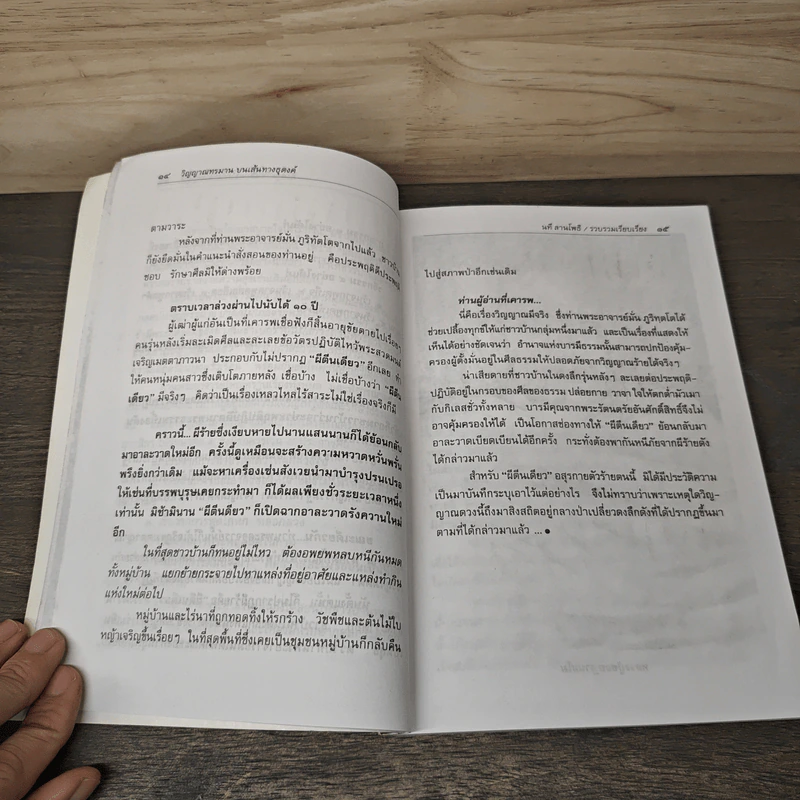 ๑๔ วิญญาณทรมาน บนเส้นทางธุดงค์
ตามวาระ
หลังจากที่ท่านพระอาจารย์มั่น ภูริทัตโตจากไปแล้ว ชาวบ้าน
ก็ยังยึดมั่นในคำแนะนำสั่งสอนของท่านอยู่ คือประพฤติดีประพฤติ
ชอบ รักษาศีลมิให้ด่างพร้อย
ตราบเวลาล่วงผ่านไปนับได้ ๑๐ ปี
ผู้เฒ่าผู้แก่อันเป็นที่เคารพเชื่อฟังก็สิ้นอายุขัยตายไปเรื่อยๆ
คนรุ่นหลังเริ่มละเมิดศีลและละเลยข้อวัตรปฏิบัติไหว้พระสวดมนต์
เจริญเมตตาภาวนา ประกอบกับไม่ปรากฏ “ผีตีนเดียว” อีกเลย ทำ
ให้คนหนุ่มคนสาวซึ่งเติบโตภายหลัง เชื่อบ้าง ไม่เชื่อบ้างว่า “ผีตีน
เดียว” มีจริงๆ คิดว่าเป็นเรื่องเหลวไหลไร้สาระไม่ใช่เรื่องจริงก็มี
คราวนี้... ผีร้ายซึ่งเงียบหายไปนานแสนนานก็ได้ย้อนกลับ
มาอาละวาดใหม่อีก ครั้งนี้ดูเหมือนจะสร้างความหวาดหวั่นพรั่น
พรึงยิ่งกว่าเดิม แม้จะหาเครื่องเซ่นสังเวยนำมาบำรุงปรนเปรอ
ให้เช่นที่บรรพบุรุษเคยกระทำมา ก็ได้ผลเพียงชั่วระยะเวลาหนึ่ง
เท่านั้น มิช้ามินาน “ผีตีนเดียว” ก็เปิดฉากอาละวาดรังควานใหม่
อีก
ในที่สุดชาวบ้านก็ทนอยู่ไม่ไหว ต้องอพยพหลบหนีกันหมด
ทั้งหมู่บ้าน แยกย้ายกระจายไปหาแหล่งที่อยู่อาศัยและแหล่งทำกิน
แห่งใหม่ต่อไป
หมู่บ้านและไร่นาที่ถูกทอดทิ้งให้รกร้าง วัชพืชและต้นไม้ใบ
หญ้าเจริญขึ้นเรื่อยๆ ในที่สุดพื้นที่ซึ่งเคยเป็นชุมชนหมู่บ้านก็กลับคืน
นที ลานโพธิ / รวบรวมเรียบเรียง ๑๕
ไปสู่สภาพป่าอีกเช่นเดิม
ท่านผู้อ่านที่เคารพ...
นี่คือเรื่องวิญญาณมีจริง ซึ่งท่านพระอาจารย์มั่น ภูริทัตโตได้
ช่วยเปลื้องทุกข์ให้แก่ชาวบ้านกลุ่มหนึ่งมาแล้ว และเป็นเรื่องที่แสดงให้
เห็นได้อย่างชัดเจนว่า อำนาจแห่งบารมีธรรมนั้นสามารถปกป้องคุ้ม-
ครองผู้ตั้งมั่นอยู่ในศีลธรรมให้ปลอดภัยจากวิญญาณร้ายได้จริงๆ
น่าเสียดายที่ชาวบ้านในดงลึกรุ่นหลังๆ ละเลยต่อประพฤติ-
ปฏิบัติอยู่ในกรอบของศีลของธรรม ปล่อยกาย วาจา ใจให้ตกต่ำมัวเมา
กับกิเลสชั่วทั้งหลาย บารมีคุณจากพระรัตนตรัยอันศักดิ์สิทธิ์จึงไม่
อาจคุ้มครองให้ได้ เป็นโอกาสช่องทางให้ “ผีตีนเดียว” ย้อนกลับมา
อาละวาดเบียดเบียนได้อีกครั้ง กระทั่งต้องพากันหนีภัยจากผีร้ายดัง
ได้กล่าวมาแล้ว
สำหรับ “ผีตีนเดียว” อสุรกายตัวร้ายตนนี้ มิได้มีประวัติความ
เป็นมาบันทึกระบุเอาไว้แต่อย่างไร จึงไม่ทราบว่าเพราะเหตุใดวิญ-
ญาณดวงนี้ถึงมาสิงสถิตอยู่กลางป่าเปลี่ยวดงลึกดังที่ได้ปรากฏขึ้นมา
ตามที่ได้กล่าวมาแล้ว ... ●